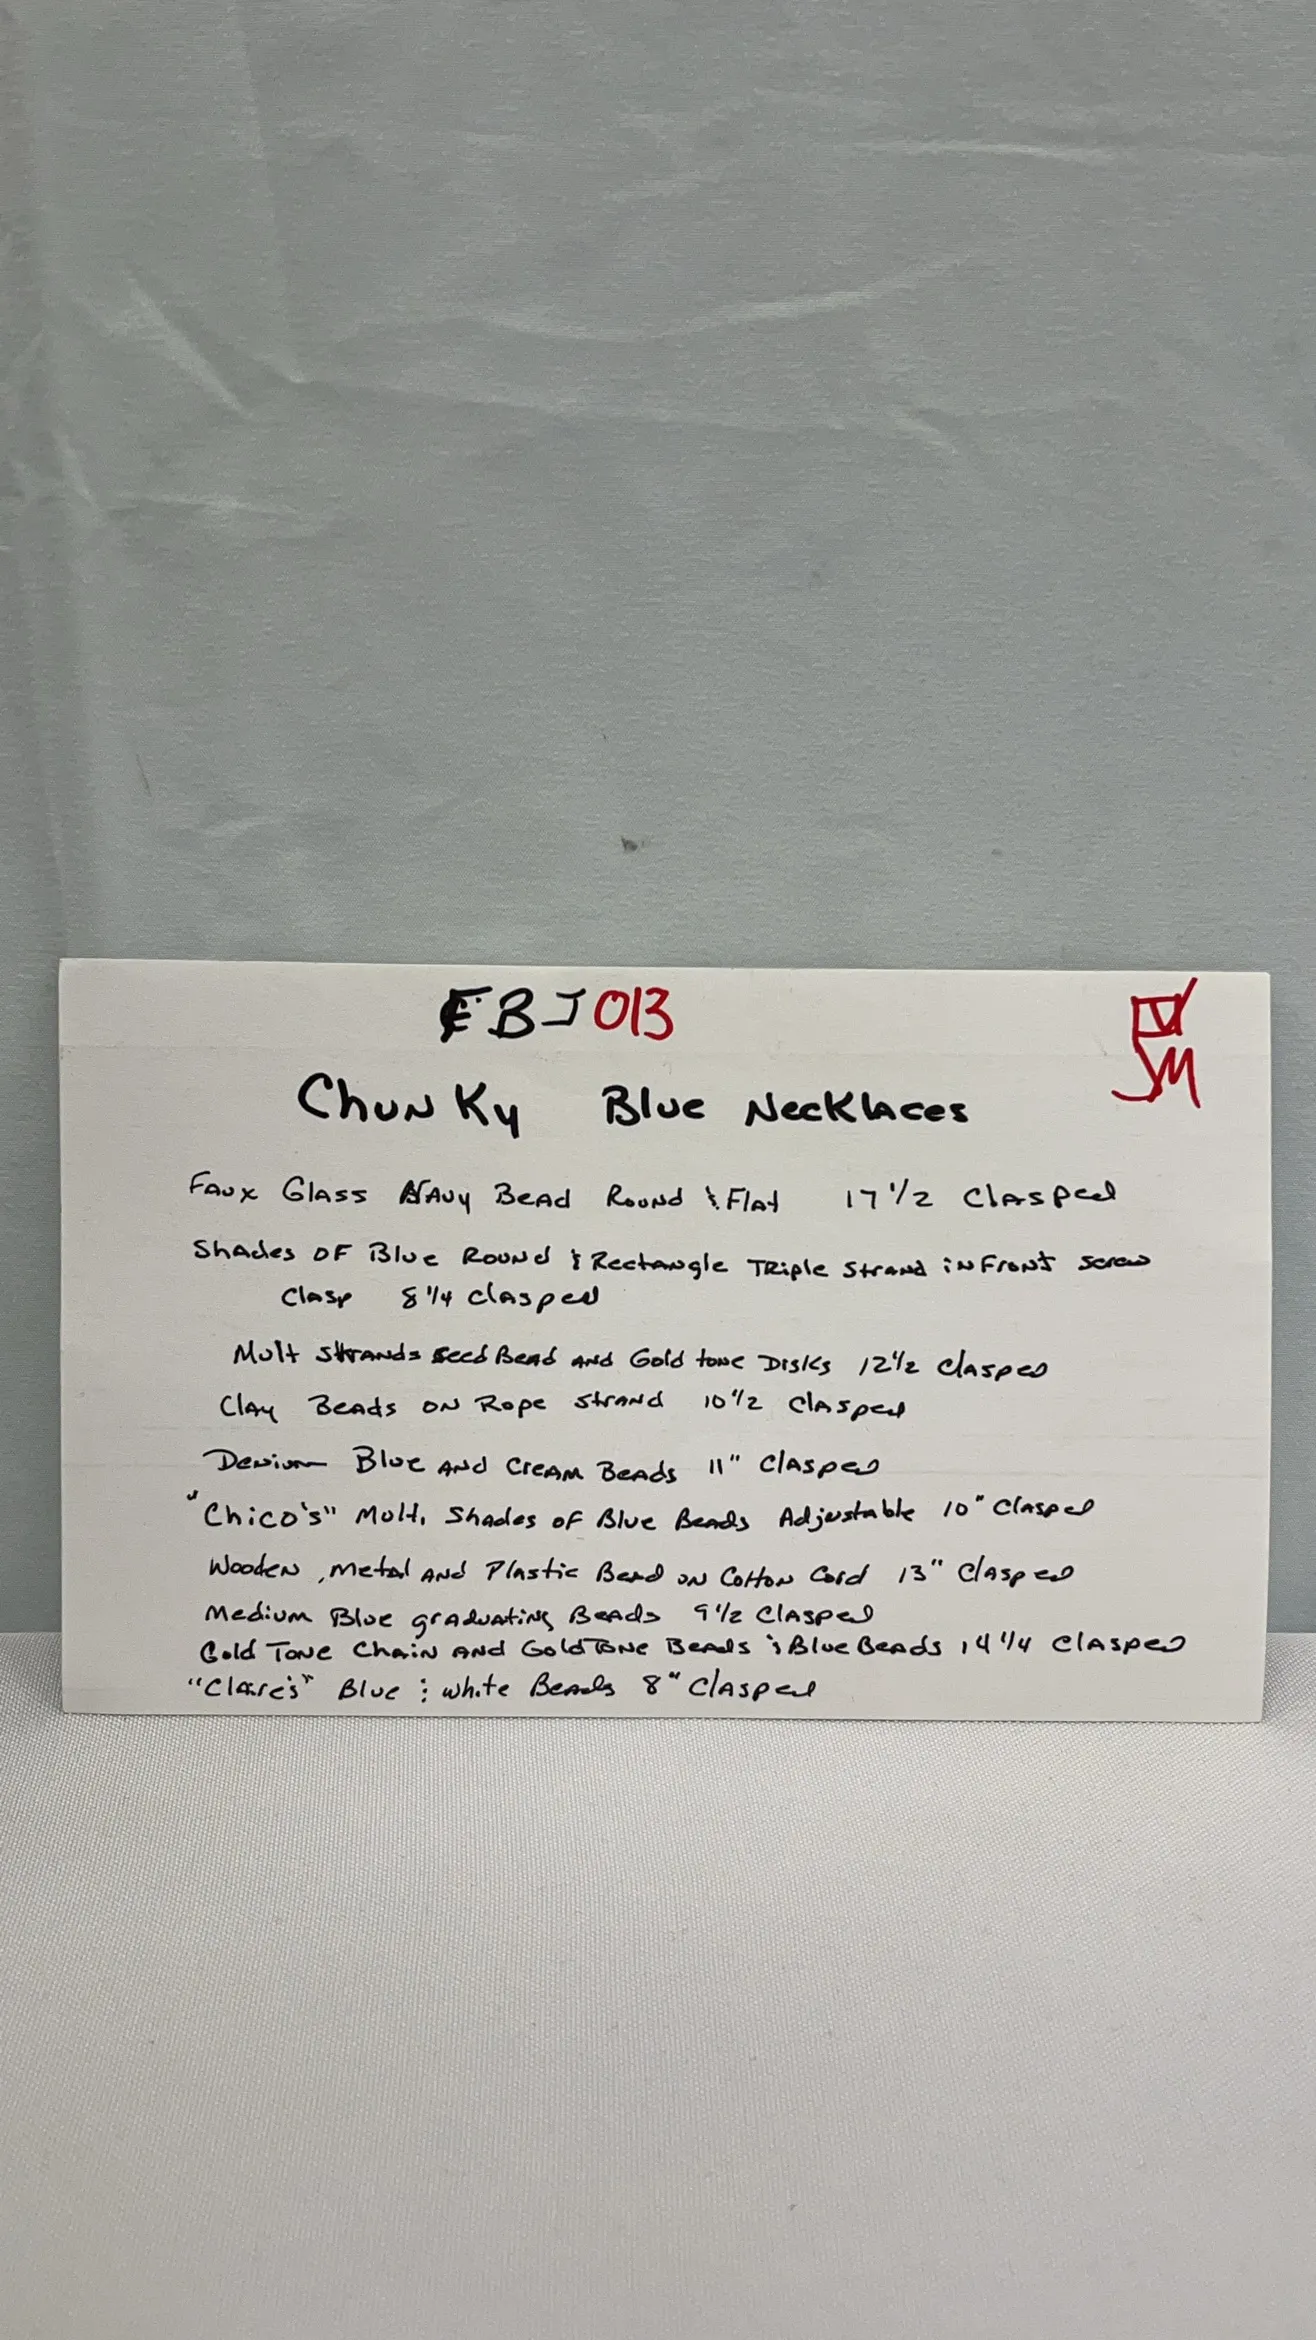 EBJ013
JM
Chunky Blue Necklaces
Faux Glass Navy Bead Round & Flat 17 1/2 Clasped
Shades of Blue Round & Rectangle Triple Strand in Front screw
Clasp 8 1/4 clasped
Mult Strands seed Bead and Gold tone Disks 12 1/2 clasped
Clay Beads on Rope strand 10 1/2 clasped
Denium Blue and Cream Beads 11" clasped
"Chico's" Mult. Shades of Blue Beads Adjustable 10" clasped
Wooden, Metal and Plastic Bead on Cotton Cord 13" clasped
Medium Blue graduating Beads 9 1/2 clasped
Gold Tone Chain and Gold Tone Beads & Blue Beads 14 1/4 clasped
"Claire's" Blue & white Beads 8" clasped